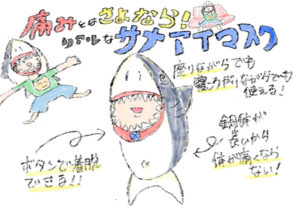 痛みとはさよなら!
リアルな サメアイマスク
座りながらでも
寝ころがりながらでも
使える!
ボタンで着脱
できる!!
胴体が
長いから
体が痛くなら
ない!